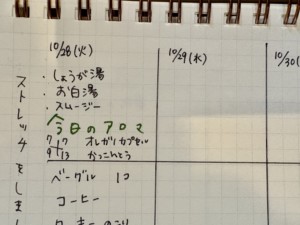 10/28(火)
・しょうが湯
・お白湯
・スムージー
今日のアロマ
7 7 オレガノカプセル
9 13 かっこんとう
ベーグル 1コ
コーヒー
10/29(水)
10/30(
ストレッチをしま